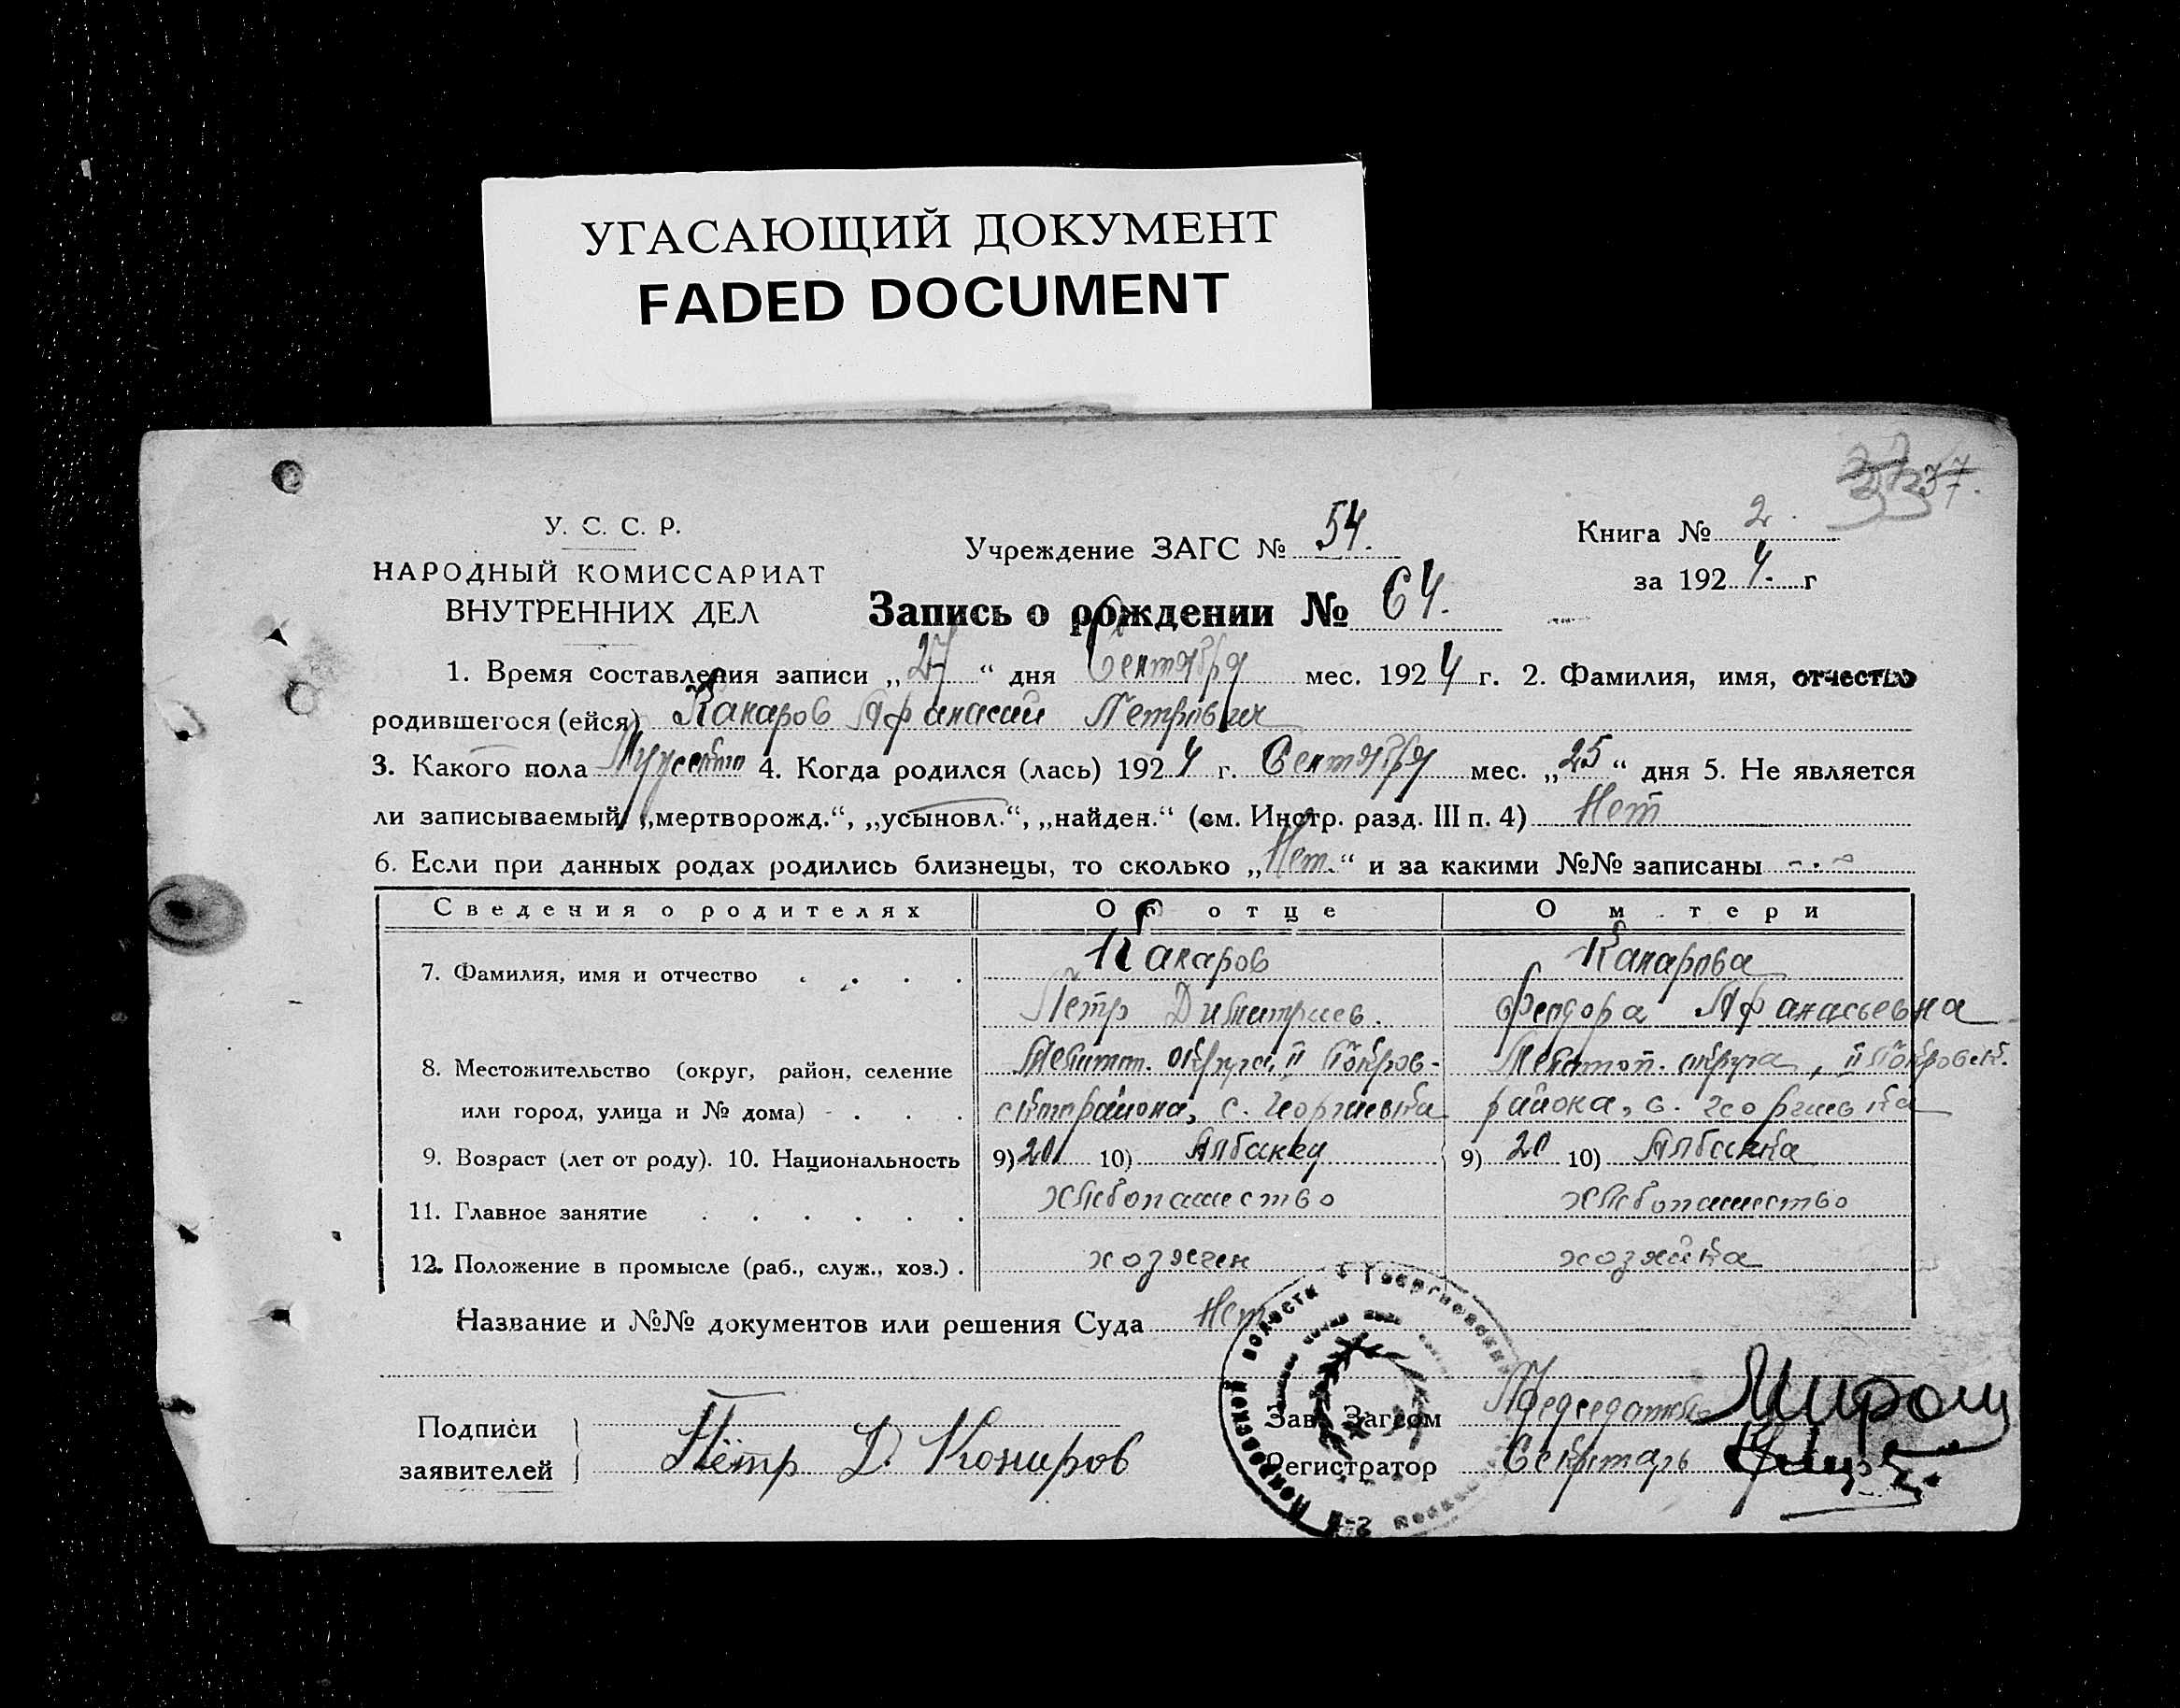 УГАСАЮЩИЙ ДОКУМЕНТ
FADED DOCUMENT
37.
У. С. С. Р.
НАРОДНЫЙ КОМИССАРИАТ
ВНУТРЕННИХ ДЕЛ
Учреждение ЗАГС № 54.
Книга № 2.
за 1924. г
Запись о рождении № 64.
1. Время составления записи „27“ дня Сентября мес. 1924 г. 2. Фамилия, имя, отчество
родившегося (ейся) Какаров Афанасий Петрович
3. Какого пола Мужского 4. Когда родился (лась) 1924 г. Сентября мес. „25“ дня 5. Не является
ли записываемый „мертворожд.“, „усыновл.“, „найден.“ (см. Инстр. разд. III п. 4) Нет
6. Если при данных родах родились близнецы, то сколько „Нет.“ и за какими №№ записаны
Сведения о родителях Об отце О м тери
7. Фамилия, имя и отчество Какаров Какарова
Петр Димитриев. Феодора Афанасьевна
8. Местожительство (округ, район, селение Мелитоп. округа, II Покров- Мелитоп. округа, II Покровск.
или город, улица и № дома) ского района, с. Георгиевка района, с. Георгиевка
9. Возраст (лет от роду). 10. Национальность 9) 20 10) Албанец 9) 20 10) Албанка
11. Главное занятие хлебопашество хлебопашество
12. Положение в промысле (раб., служ., хоз.) хозяин хозяйка
Название и №№ документов или решения Суда Нет
Подписи
заявителей
Пётр Д. Кокаров
Зав. Загсом Председатель
Регистратор Секретарь